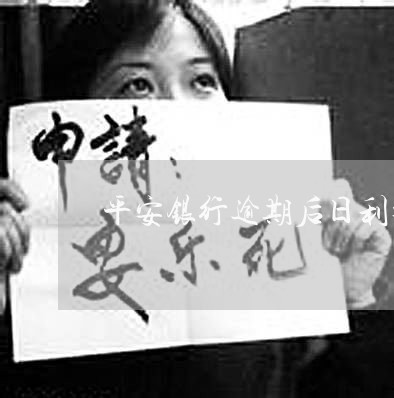 申請：
平安银行逾期后日利
要乐死